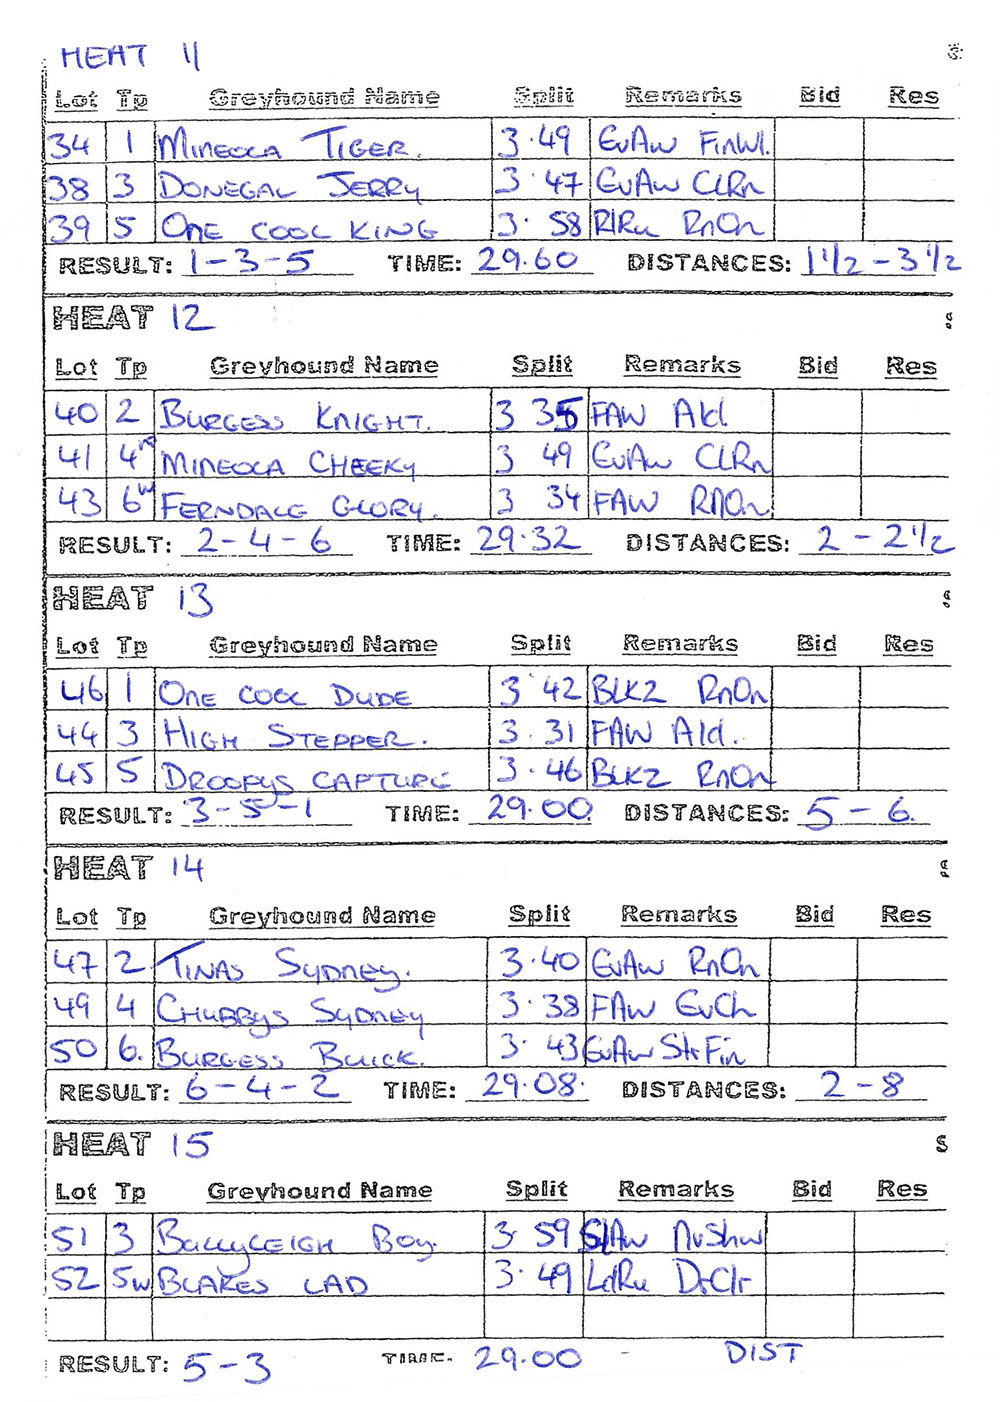 HEAT 11
Lot Tp Greyhound Name Split Remarks Bid Res
34 1 MINEOLA TIGER. 3.49 EvAw FinWl.
38 3 DONEGAL JERRY 3.47 EvAw CLRn
39 5 ONE COOL KING 3.58 RlRu RnOn
RESULT: 1-3-5 TIME: 29.60 DISTANCES: 1 1/2 - 3 1/2
HEAT 12
Lot Tp Greyhound Name Split Remarks Bid Res
40 2 BURGESS KNIGHT. 3 35 FAW Ald.
41 4 MINEOLA CHEEKY 3 49 EvAw CLRn
43 6w FERNDALE GLORY. 3 34 FAW RnOn
RESULT: 2-4-6 TIME: 29.32 DISTANCES: 2 - 2 1/2
HEAT 13
Lot Tp Greyhound Name Split Remarks Bid Res
46 1 ONE COOL DUDE 3.42 BLK2 RnOn
44 3 HIGH STEPPER. 3.31 FAW Ald.
45 5 DROOPYS CAPTURE 3.46 BLK2 RnOn
RESULT: 3-5-1 TIME: 29.00 DISTANCES: 5 - 6.
HEAT 14
Lot Tp Greyhound Name Split Remarks Bid Res
47 2 TINAS SYDNEY. 3.40 EvAw RnOn
49 4 CHUBBYS SYDNEY 3.38 FAw EvCh
50 6. BURGESS BUICK. 3.43 EvAw StrFin
RESULT: 6-4-2 TIME: 29.08. DISTANCES: 2-8
HEAT 15
Lot Tp Greyhound Name Split Remarks Bid Res
51 3 BALLYLEIGH BOY. 3.59 SlAw NvShw
52 5w BLAKES LAD 3.49 LdRu DrClr
RESULT: 5-3 TIME. 29.00 - DIST